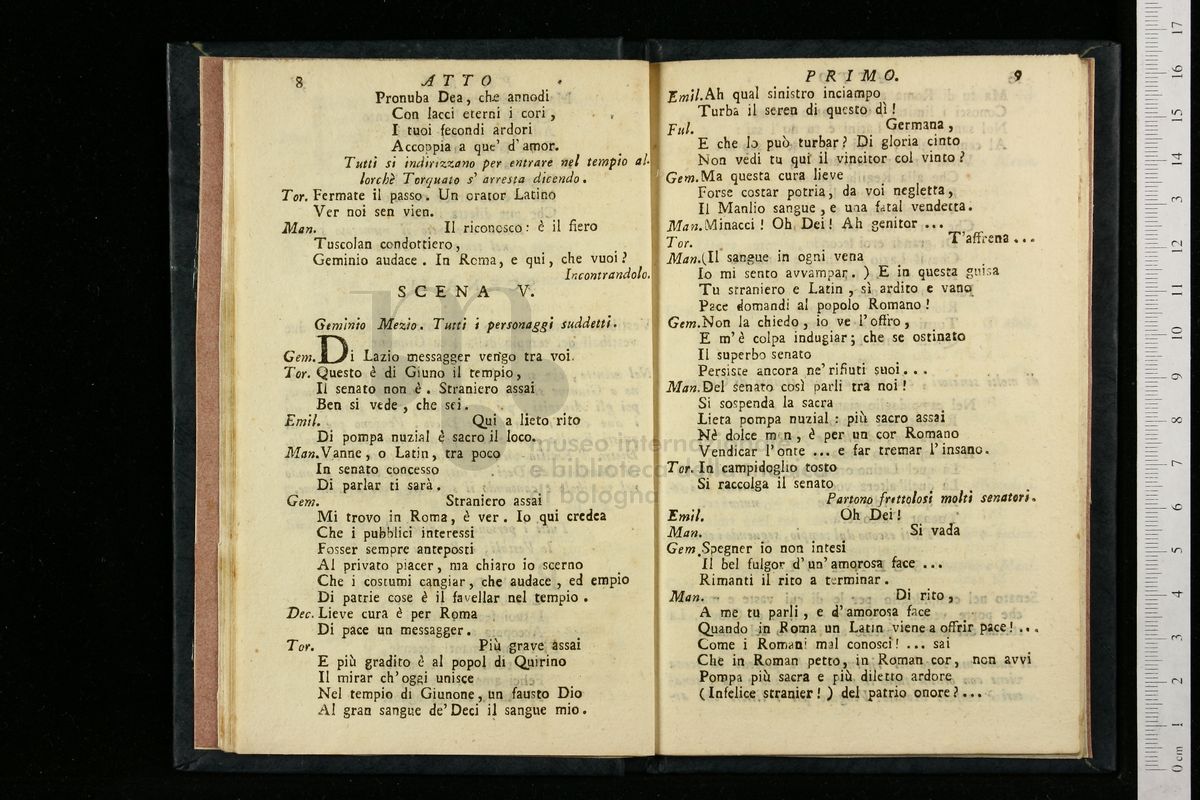 8 ATTO
Pronuba Dea, che annodi
Con lacci eterni i cori,
I tuoi fecondi ardori
Accoppia a que' d'amor.
Tutti si indirizzano per entrare nel tempio al-
lorchè Torquato s'arresta dicendo.
Tor. Fermate il passo. Un orator Latino
Ver noi sen vien.
Man. Il riconosco: è il fiero
Tuscolan condottiero,
Geminio audace. In Roma, e qui, che vuoi?
Incontrandolo.
SCENA V.
Geminio Mezio. Tutti i personaggi suddetti.
Gem. Di Lazio messagger vengo tra voi.
Tor. Questo è di Giuno il tempio,
Il senato non è. Straniero assai
Ben si vede, che sei.
Emil. Qui a lieto rito
Di pompa nuzial è sacro il loco.
Man. Vanne, o Latin, tra poco
In senato concesso
Di parlar ti sarà.
Gem. Straniero assai
Mi trovo in Roma, è ver. Io qui credea
Che i pubblici interessi
Fosser sempre anteposti
Al privato piacer, ma chiaro io scerno
Che i costumi cangiar, che audace, ed empio
Di patrie cose è il favellar nel tempio.
Dec. Lieve cura è per Roma
Di pace un messagger.
Tor. Più grave assai
E più gradito è al popol di Quirino
Il mirar ch'oggi unisce
Nel tempio di Giunone, un fausto Dio
Al gran sangue de' Deci il sangue mio.
PRIMO. 9
Emil. Ah qual sinistro inciampo
Turba il seren di questo dì!
Ful. Germana,
E che lo può turbar? Di gloria cinto
Non vedi tu qui il vincitor col vinto?
Gem. Ma questa cura lieve
Forse costar potria, da voi negletta,
Il Manlio sangue, e una fatal vendetta.
Man. Minacci! Oh Dei! Ah genitor ...
Tor. T'affrena ...
Man. (Il sangue in ogni vena
Io mi sento avvampar.) E in questa guisa
Tu straniero e Latin, sì ardito e vano
Pace domandi al popolo Romano!
Gem. Non la chiedo, io ve l'offro,
E m'è colpa indugiar; che se ostinato
Il superbo senato
Persiste ancora ne' rifiuti suoi...
Man. Del senato così parli tra noi!
Si sospenda la sacra
Lieta pompa nuzial: più sacro assai
Nè dolce men, è per un cor Romano
Vendicar l'onte ... e far tremar l'insano.
Tor. In campidoglio tosto
Si raccolga il senato
Partono frettolosi molti senatori.
Emil. Oh Dei!
Man. Si vada
Gem. Spegner io non intesi
Il bel fulgor d'un'amorosa face ...
Rimanti il rito a terminar.
Man. Di rito,
A me tu parli, e d'amorosa face
Quando in Roma un Latin viene a offrir pace! ...
Come i Romani mal conosci! ... sai
Che in Roman petto, in Roman cor, non avvi
Pompa più sacra e più diletto ardore
(Infelice stranier!) del patrio onore?...
museo internazionale
e biblioteca della musica
di bologna
0 cm 1 2 3 4 5 6 7 8 9 10 11 12 13 14 15 16 17